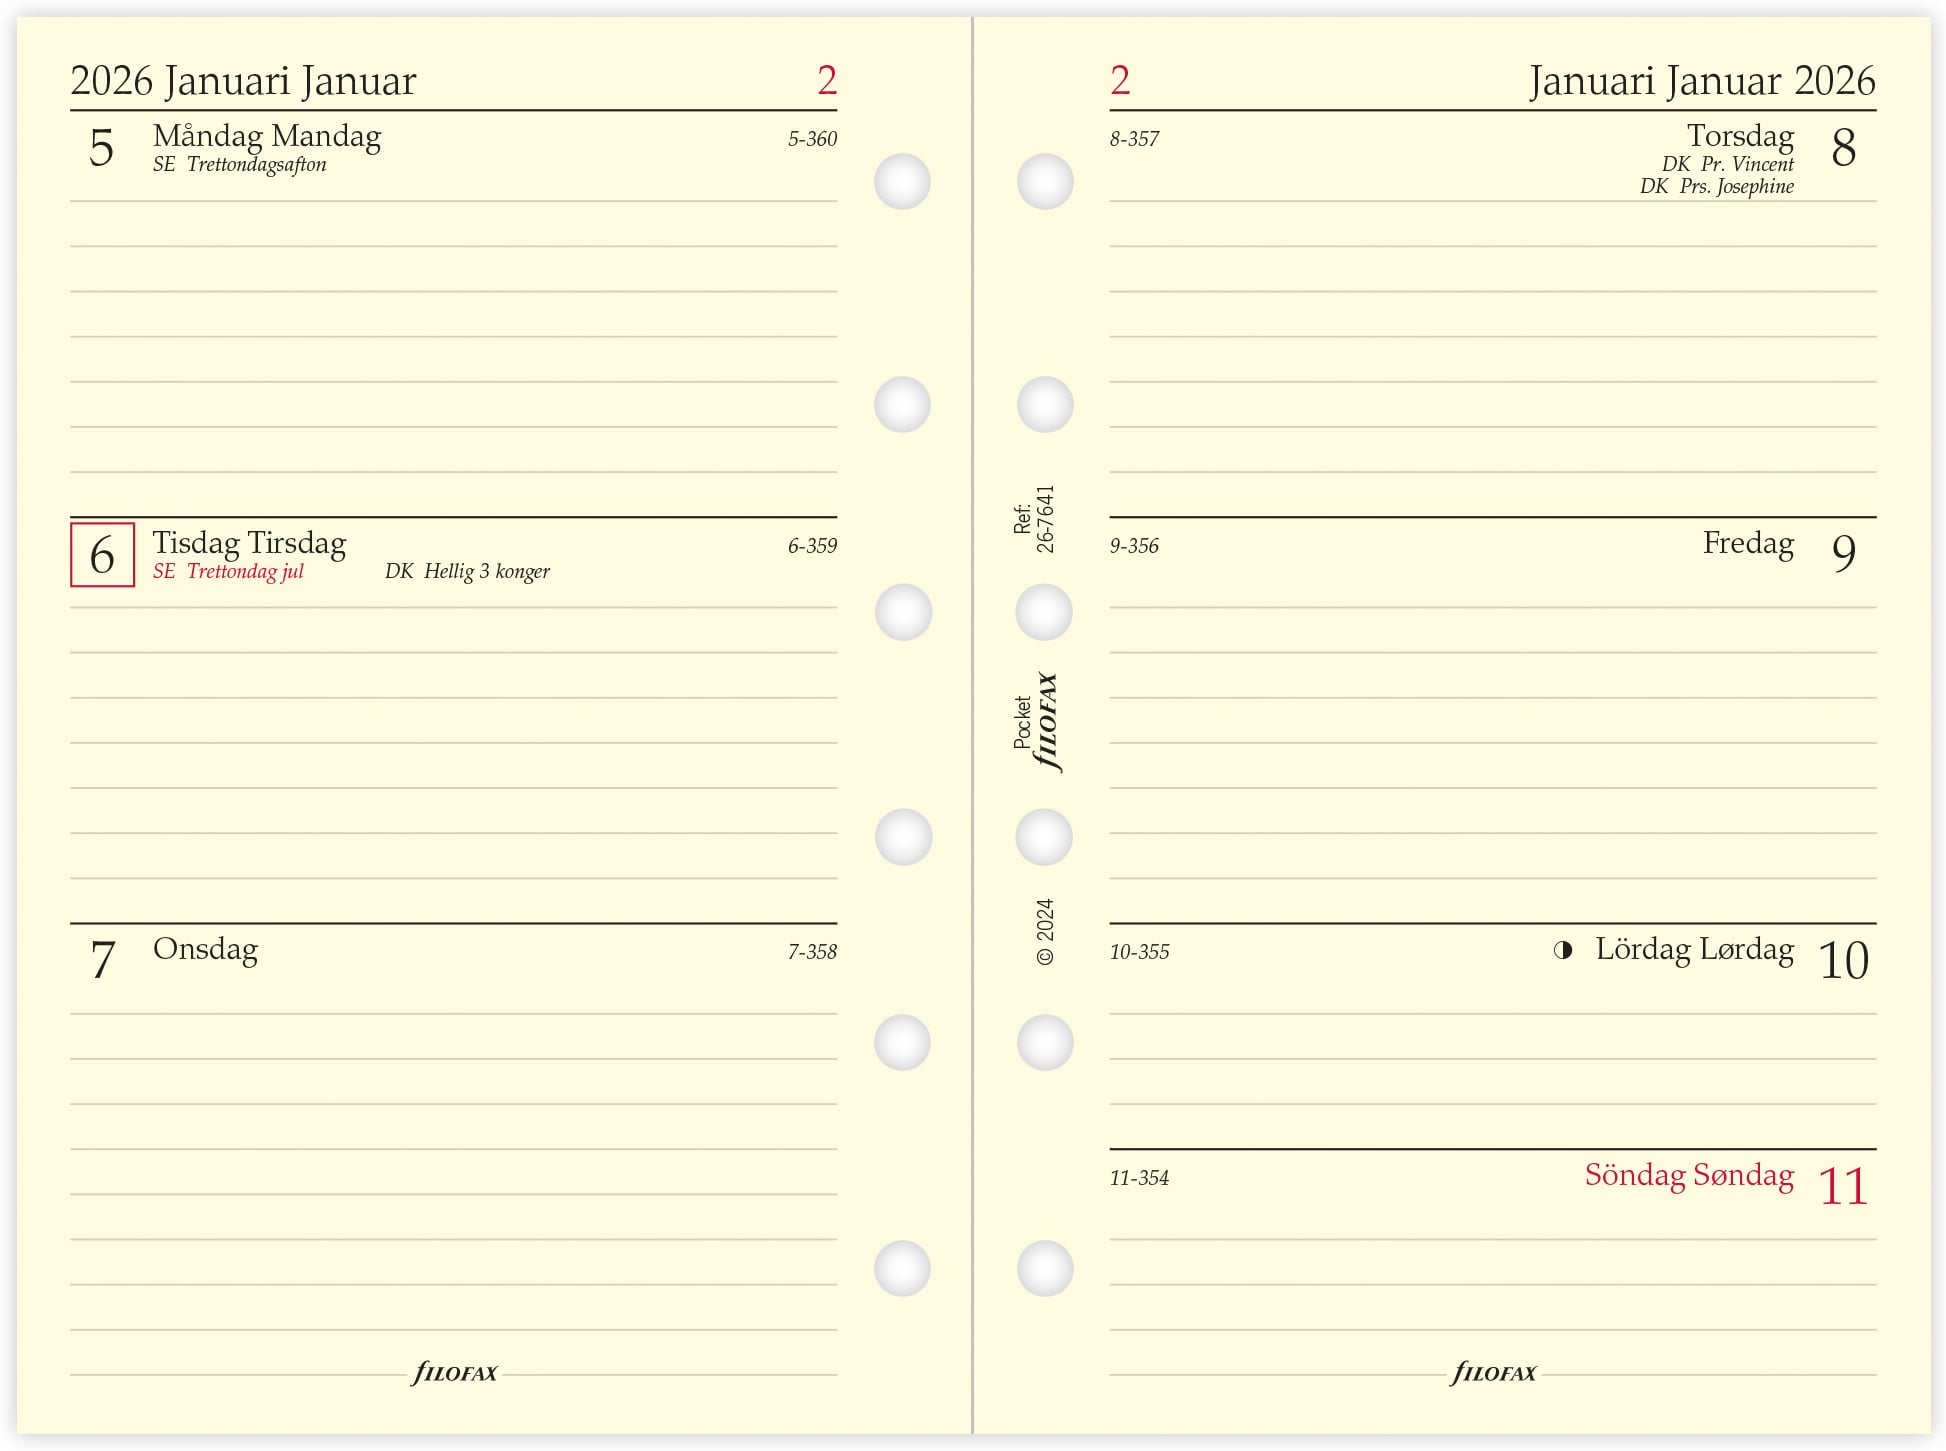 2026 Januari Januar 2
5 Måndag Mandag 5-360
SE Trettondagsafton
6 Tisdag Tirsdag 6-359
SE Trettondag jul DK Hellig 3 konger
7 Onsdag 7-358
fILOFAX
2 Januari Januar 2026
8-357 Torsdag 8
DK Pr. Vincent
DK Prs. Josephine
9-356 Fredag 9
10-355 Lördag Lørdag 10
11-354 Söndag Søndag 11
fILOFAX
Ref:
26-7641
Pocket
fILOFAX
© 2024